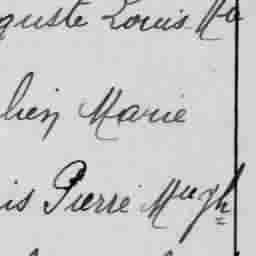 guste Louis Ma
lien Marie
is Pierre Mugh